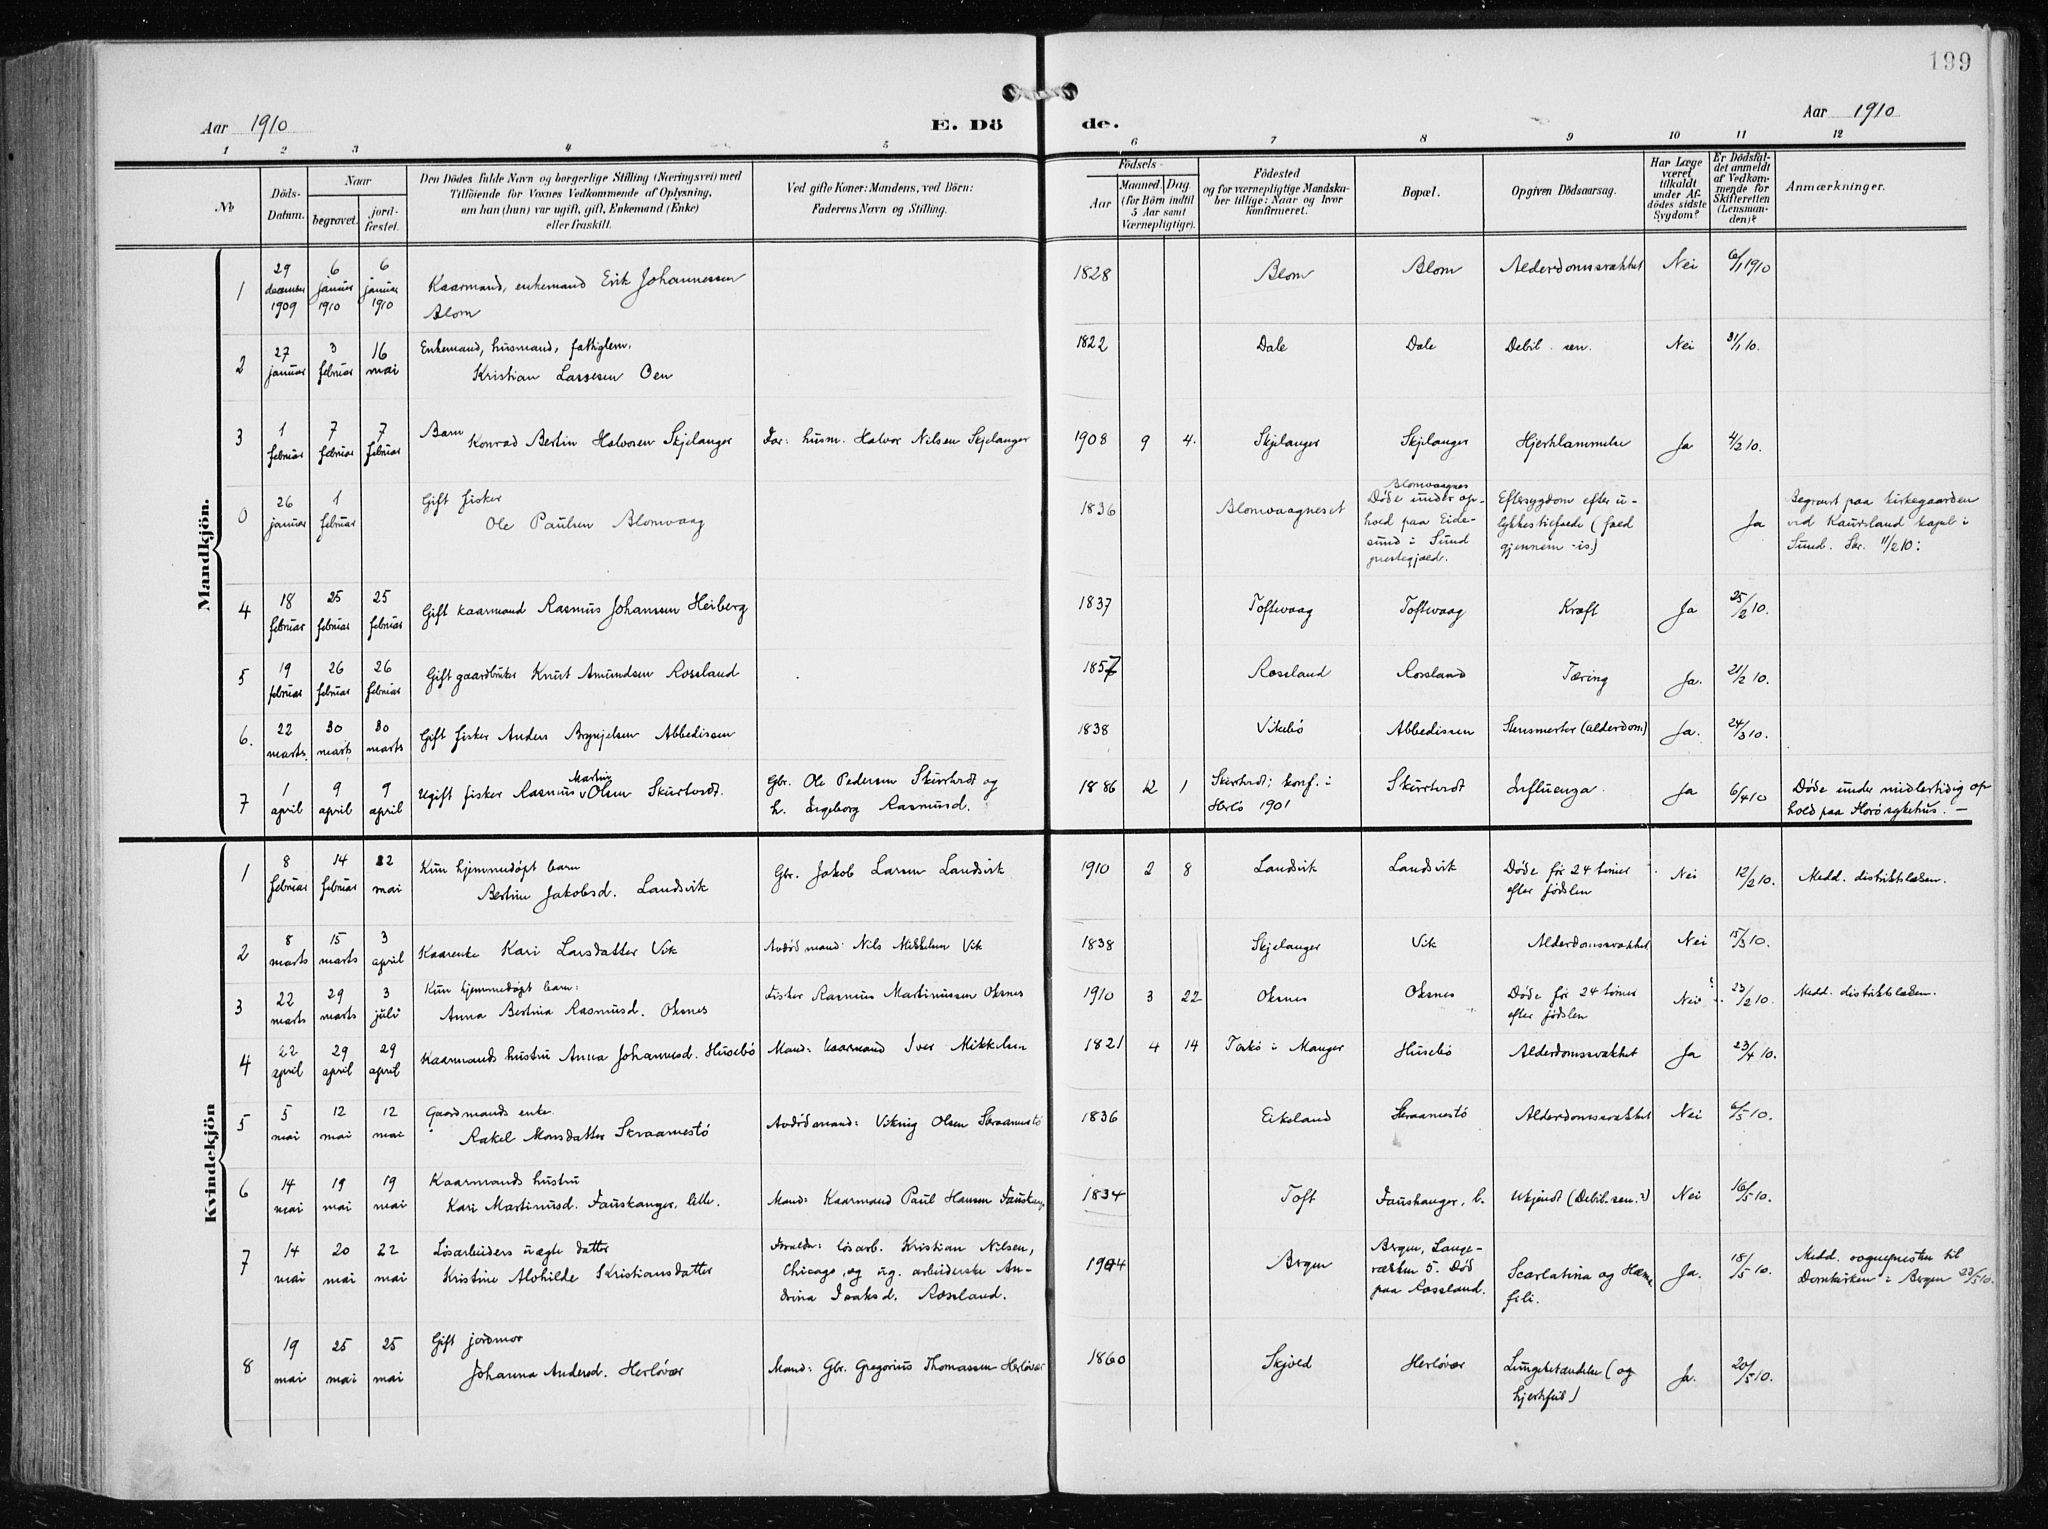 199
Aar 1910
E. Döde.
Aar 1910
1 2 3 4 5 6 7 8 9 10 11 12
No.
Döds-Datum.
Naar
begravet.
jord-fæstet.
Den Dödes fulde Navn og borgerlige Stilling (Næringsvei) med
Tilföiende for Voxnes Vedkommende af Oplysning,
om han (hun) var ugift, gift, Enkemand (Enke)
eller fraskilt.
Ved gifte Koner: Mandens, ved Börn:
Faderens Navn og Stilling.
Födsels-
Aar
Maaned. Dag
(for Börn indtil
5 Aar samt
Værnepligtige).
Födested
og for værnepligtige Mandska-
ber tillige: Naar og hvor
konfirmeret.
Bopæl.
Opgiven Dödsaarsag.
Har Læge
været
tilkaldt
under Af-
dödes sidste
Sygdom?
Er Dödsfal-
det anmeldt
af Vedkom-
mende for
Skifteretten
(Lensman-
den)?
Anmærkninger.
Mandkjön.
1 29 december 1909 6 januar 1910 6 januar 1910 Kaarmand, enkemand Erik Johannessen Blom 1828 Blom Blom Alderdomssvakhet Nei 6/1 1910
2 27 januar 3 februar 16 mai Enkemand, husmand, fattiglem. Kristian Lassesen Oen 1822 Dale Dale Debil. sen. Nei 31/1 10.
3 1 februar 7 februar 7 februar Barn Konrad Bertin Halvosen Skjelanger Far: husm. Halvor Nilsen Skjelanger 1908 9 4. Skjelanger Skjelanger Hjertelammelse Ja 4/2 10.
0 26 januar 1 februar Gift fisker Ole Paulsen Blomvaag 1836 Blomvaagneset Blomvaagnes Døde under op-hold paa Eide-sund i Sund prestegjæld. Eftersygdom efter u-lykkestilfælde (fald gjennem is) Ja Begravt paa kirkegaarden ved Kaursland kapel i Sund. Skr. 11/2 10:
4 18 februar 25 februar 25 februar Gift kaarmand Rasmus Johansen Heiberg 1837 Toftevaag Toftevaag Kræft Ja 25/2 10.
5 19 februar 26 februar 26 februar Gift gaardbruker Knut Amundsen Rossland 1857 Rossland Rossland Tæring Ja. 21/2 10.
6. 22 marts 30 marts 30 marts Gift fisker Anders Brynjelsen Abbedissen 1838 Vikebø Abbedissen Stensmerter (alderdom) Ja. 24/3 10.
7 1 april 9 april 9 april Ugift fisker Rasmus Martin Olsen Skurtvedt. Gbr. Ole Pedersen Skurtvedt og h. Ingeborg Rasmusd. 1886 12 1 Skurtvedt; konf. i Herlö 1901 Skurtvedt Influenza. Ja 6/4 10 Døde under midlertidig op hold paa Florø sykehus. —
Kvindekjön
1 8 februar 14 februar 22 mai Kun hjemmedøpt barn Bertine Jakobsd. Landsvik Gbr. Jakob Larsen Landsvik 1910 2 8 Landsvik Landsvik Døde før 24 timer efter fødslen Nei 12/2 10. Medd. distriktslægen.
2 8 marts 15 marts 3 april Kaarenke Kari Larsdatter Vik Avdød mand: Nils Mikkelsen Vik 1838 Skjelanger Vik Alderdomssvakhet Nei 15/3 10.
3 22 marts 29 marts 3 juli Kun hjemmedøpt barn: Anna Bertina Rasmusd. Oksnes Fisker Rasmus Martinussen Oksnes 1910 3 22 Oksnes Oksnes Døde før 24 timer efter fødslen Nei ? 23/2 10. Medd. distriktslægen.
4 22 april 29 april 29 april Kaarmands hustru Anna Johannesd. Husebø Mand: kaarmand Iver Mikkelsen 1821 4 14 Toskø i Manger Husebø Alderdomssvakhet Ja 23/4 10.
5 5 mai 12 mai 12 mai Gaardmands enke. Rakel Monsdatter Skraamestø Avdød mand: Viking Olsen Skraamestø 1836 Eikeland Skraamestø Alderdomssvakhet Nei 6/5 10.
6 14 mai 19 mai 19 mai Kaarmands hustru Kari Martinusd. Fauskanger, lille. Mand: Kaarmand Paul Hansen Fauskang. 1834 Toft Fauskanger, l. Ukjendt (Debil. sen.?) Nei 16/5 10.
7 14 mai 20 mai 22 mai Løsarbeiders uægte datter Kristine Alohilde Kristiansdatter Forældre: løsarb. Kristian Nilsen, Chicago, og ug. arbeiderske An-drina Isaksd. Rossland. 1904 Bergen Bergen, Lange-rækken 5. Død paa Rossland. Scarlatina og Hæmo fili. Ja. 18/5 10. Medd. sognepresten til Domkirken i Bergen 23/5 10.
8 19 mai 25 mai 25 mai Gift jordmor Johanna Andersd. Herløvær Mand: Gbr. Gregorius Thomassen Herløvær 1860 Skjold Herløvær Lungebetændelse (og hjertefeil) Ja. 20/5 10.